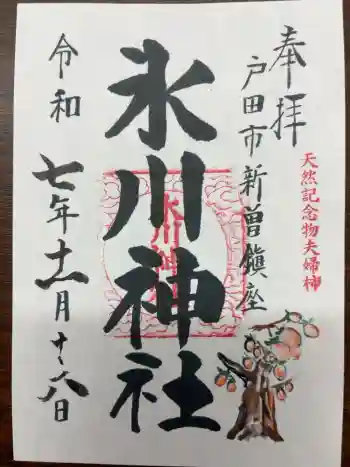 奉拝
戸田市新曽鎮座
天然記念物夫婦柿
氷川神社
氷川神
令和七年十一月十六日